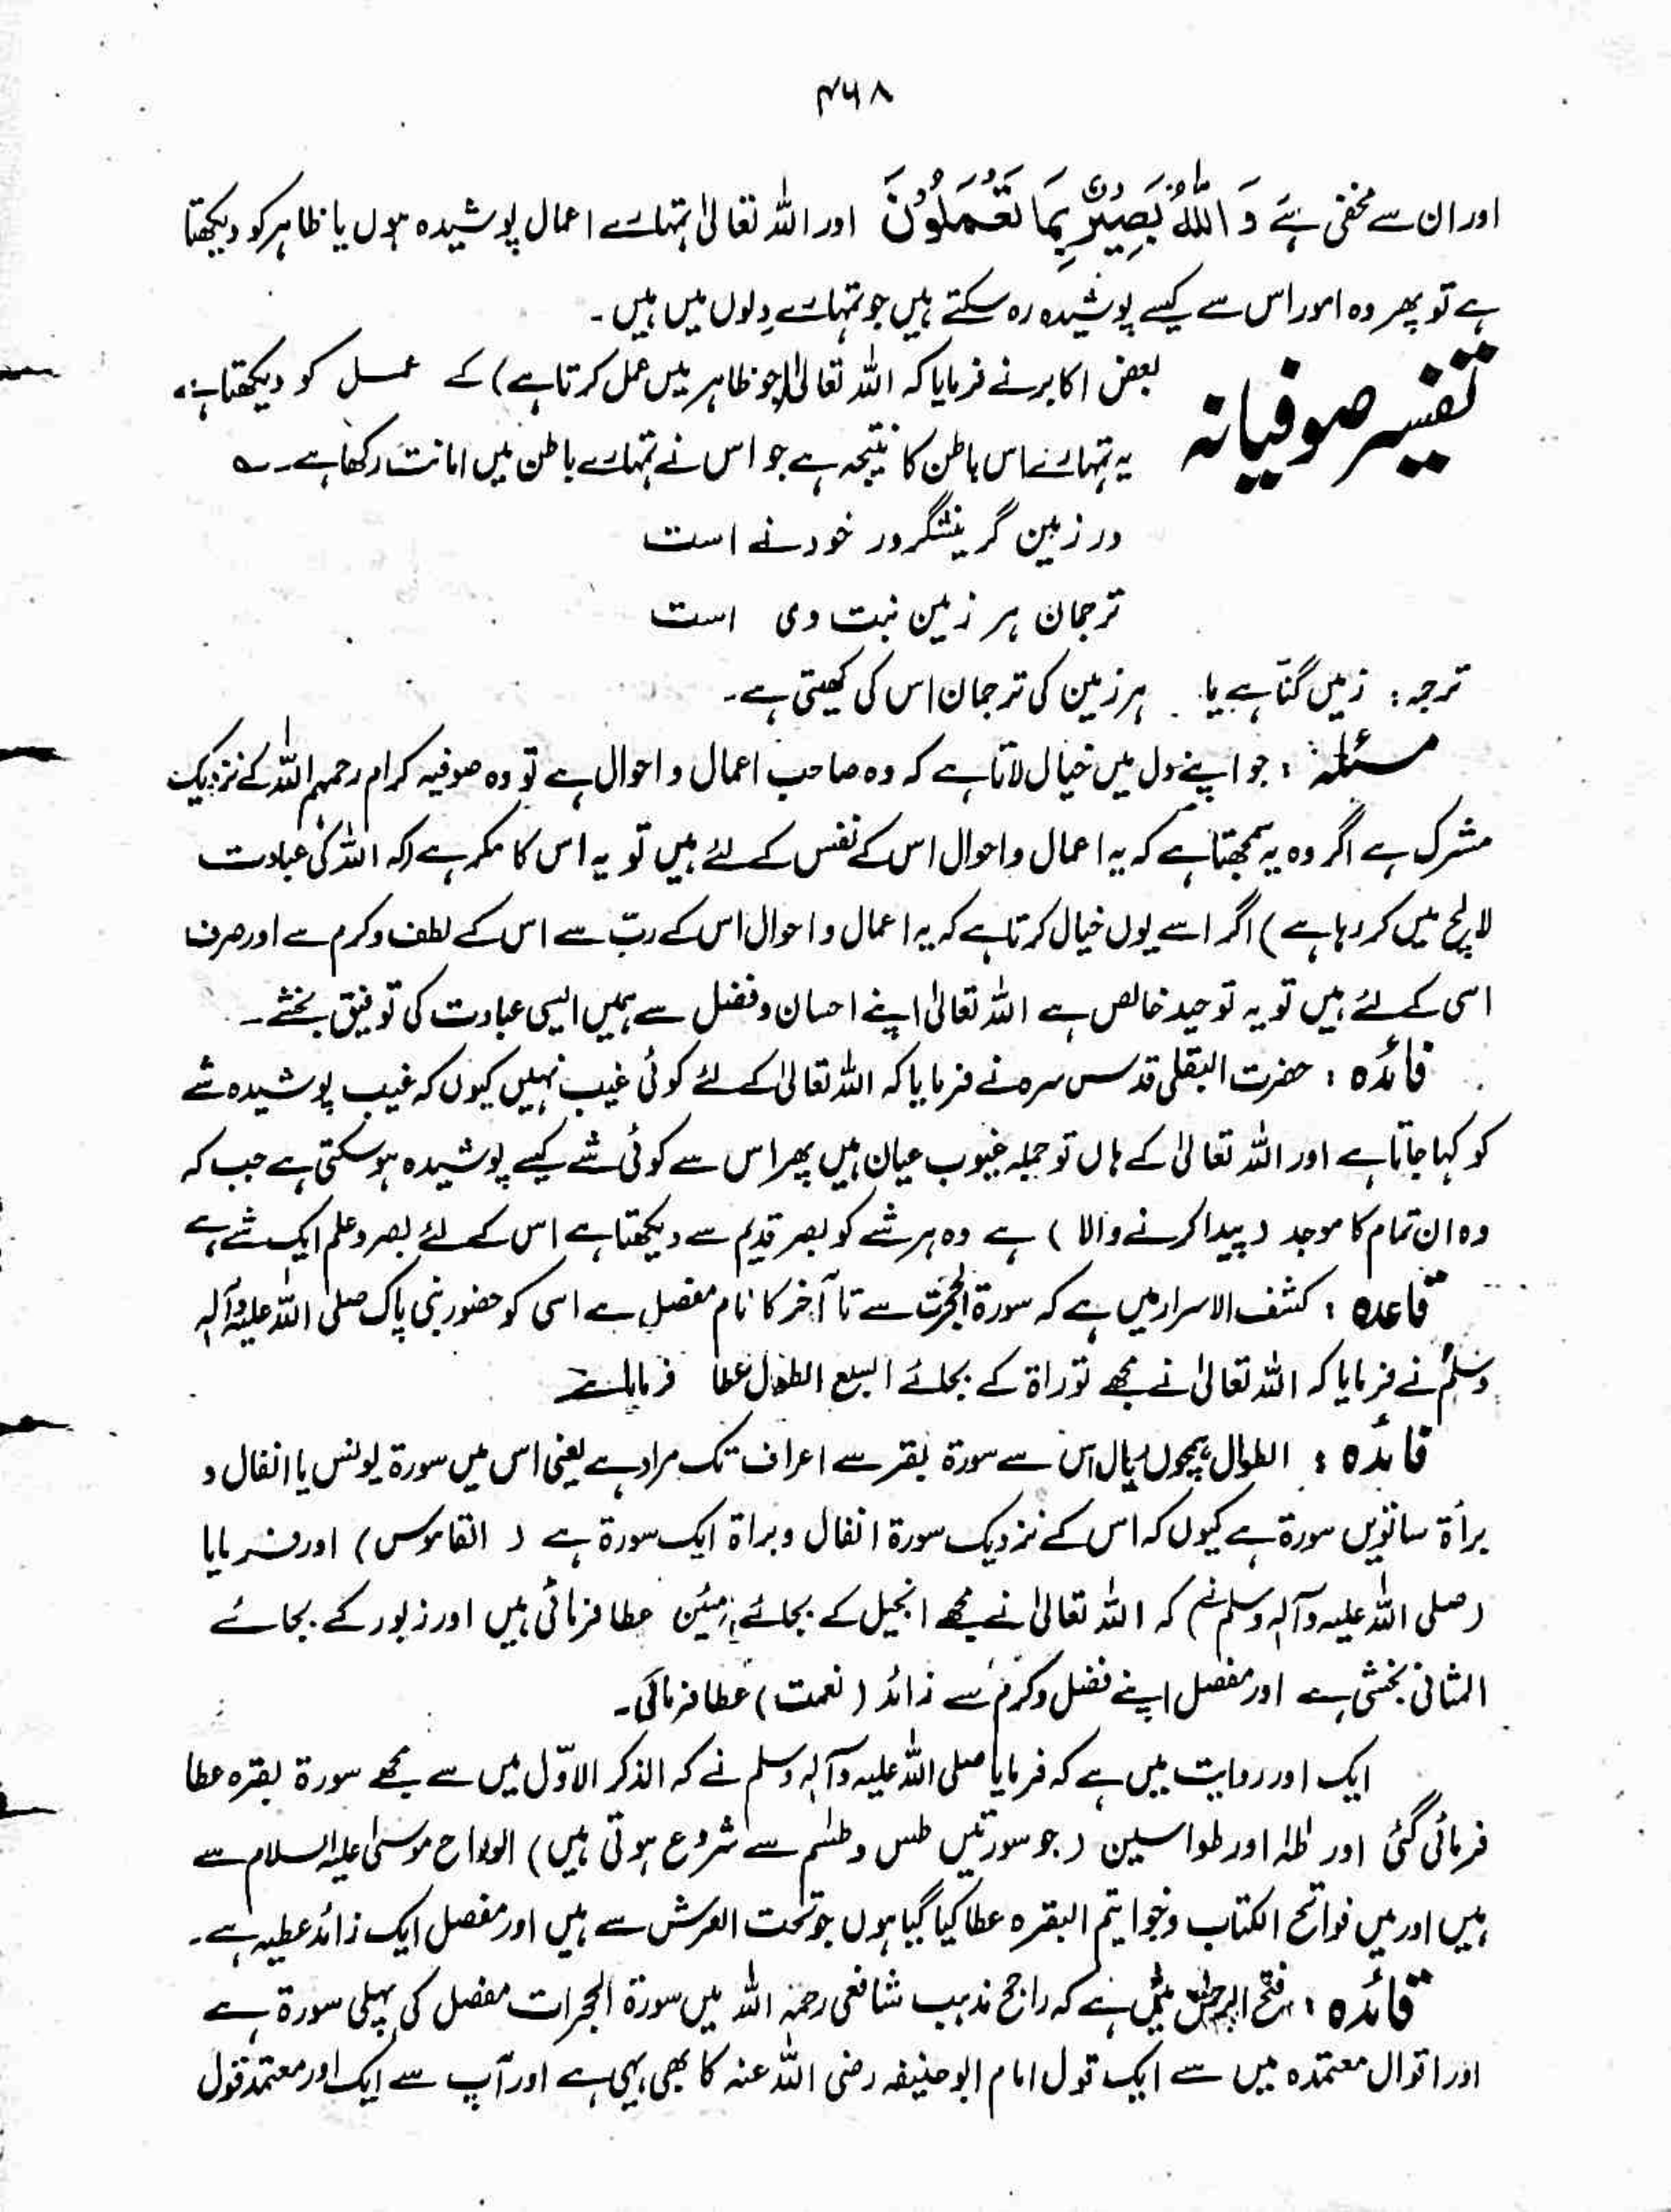 ۴۶۸
اور ان سے مخفی ہے وَ اللّٰهُ بَصِيْرٌۢ بِمَا تَعْمَلُوْنَ اور اللہ تعالیٰ تمہارے اعمال پوشیدہ ہوں یا ظاہر کو دیکھتا
ہے تو پھر وہ امور اس سے کیسے پوشیدہ رہ سکتے ہیں جو تمہارے دلوں میں ہیں ۔
تفسیر صوفیانہ
بعض اکابر نے فرمایا کہ اللہ تعالیٰ (جو ظاہر میں عمل کرتا ہے) کے عمل کو دیکھتا ہے،
یہ تمہارے اس باطن کا نتیجہ ہے جو اس نے تمہارے باطن میں امانت رکھا ہے ۔ ؎
در زمین گر نیشکر ور خود نے است
ترجمان ہر زمین نبت وی است
ترجمہ : زمیں گنّا ہے یا ہر زمین کی ترجمان اس کی کھیتی ہے ۔
مسئلہ : جو اپنے دل میں خیال لاتا ہے کہ وہ صاحب اعمال و احوال ہے تو وہ صوفیہ کرام رحمہم اللہ کے نزدیک
مشرک ہے اگر وہ یہ سمجھتا ہے کہ یہ اعمال و احوال اس کے نفس کے لئے ہیں تو یہ اس کا مکر ہے (کہ اللہ کی عبادت
لالچ میں کر رہا ہے ) اگر اسے یوں خیال کرتا ہے کہ یہ اعمال و احوال اس کے ربّ سے اس کے لطف و کرم سے اور صرف
اسی کے لئے ہیں تو یہ توحید خالص ہے اللہ تعالیٰ اپنے احسان و فضل سے ہمیں ایسی عبادت کی توفیق بخشے ۔
فائدہ : حضرت البقلی قدس سرہ نے فرمایا کہ اللہ تعالیٰ کے لئے کوئی غیب نہیں کیوں کہ غیب پوشیدہ شے
کو کہا جاتا ہے اور اللہ تعالیٰ کے ہاں تو جملہ غیوب عیاں ہیں پھر اس سے کوئی شے کیسے پوشیدہ ہو سکتی ہے جب کہ
وہ ان تمام کا موجد ( پیدا کرنے والا ) ہے وہ ہر شے کو بصر قدیم سے دیکھتا ہے اس کے لئے بصر و علم ایک شے ہے
قاعدہ : کشف الاسرار میں ہے کہ سورۃ الحجرٰت سے تا آخر کا نام مفصل ہے اسی کو حضور نبی پاک صلی اللہ علیہ وآلہ
وسلم نے فرمایا کہ اللہ تعالیٰ نے مجھے توراۃ کے بجائے السبع الطوال عطا فرمایا ہے
فائدہ : الطوال اس سے سورۃ بقر سے اعراف تک مراد ہے یعنی اس میں سورۃ یونس یا انفال و
براۃ ساتویں سورۃ ہے کیوں کہ اس کے نزدیک سورۃ انفال و براۃ ایک سورۃ ہے ( القاموس ) اور فرمایا
(صلی اللہ علیہ وآلہ وسلم نے) کہ اللہ تعالیٰ نے مجھے انجیل کے بجائے مئین عطا فرمائی ہیں اور زبور کے بجائے
المثانی بخشی ہے اور مفصل اپنے فضل و کرم سے زائد ( نعمت ) عطا فرمائی ۔
ایک اور روایت میں ہے کہ فرمایا صلی اللہ علیہ وآلہ وسلم نے کہ الذکر الاوّل میں سے مجھے سورۃ بقرہ عطا
فرمائی گئی اور طٰہٰ اور طواسین ( جو سورتیں طس و طسم سے شروع ہوتی ہیں ) الواح موسیٰ علیہ السلام سے
ہیں اور میں فواتح الکتاب و خواتیم البقرہ عطا کیا گیا ہوں جو تحت العرش سے ہیں اور مفصل ایک زائد عطیہ ہے ۔
فائدہ : فتح الرحمٰن میں ہے کہ راجح مذہب شافعی رحمہ اللہ میں سورۃ الحجرات مفصل کی پہلی سورۃ ہے
اور اقوال معتمدہ میں سے ایک قول امام ابوحنیفہ رضی اللہ عنہ کا بھی یہی ہے اور آپ سے ایک اور معتمد قول